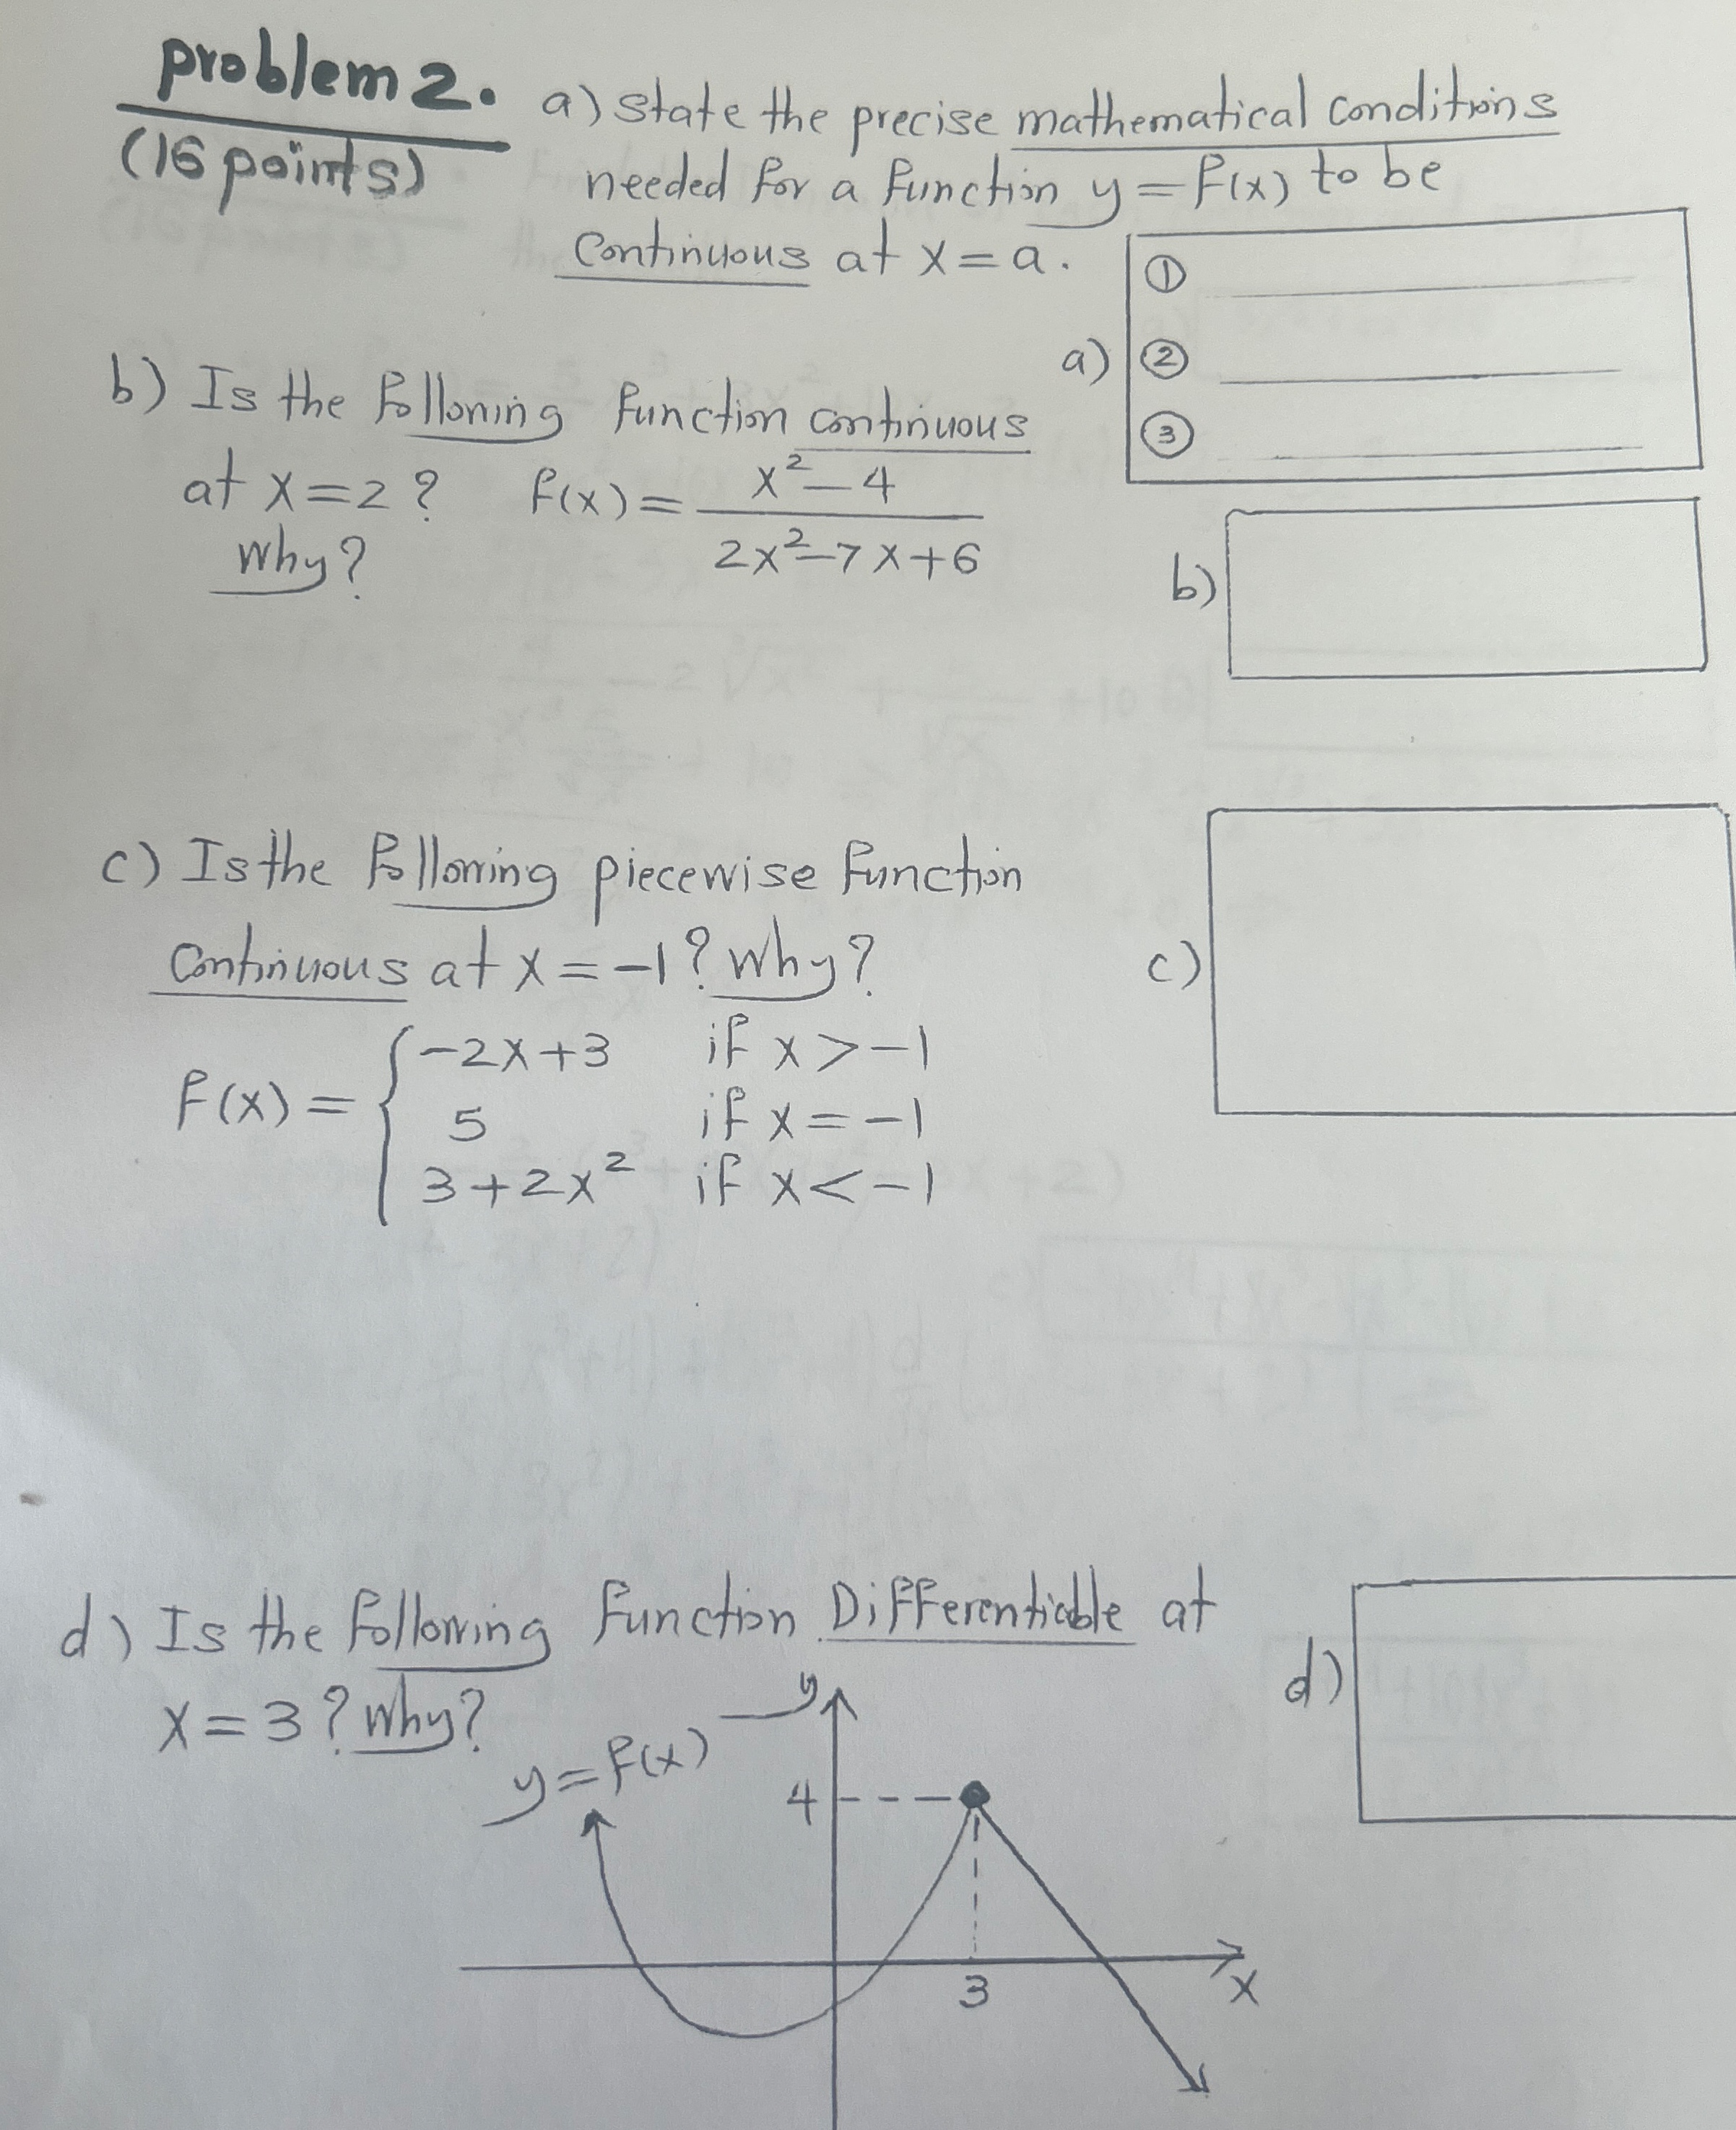 problem 2.
(16 points)
a) State the precise mathematical conditions
needed for a function y = f(x) to be
continuous at x = a.
a)
①
②
③
b) Is the following function continuous
at x = 2 ? f(x) = (x² - 4) / (2x² - 7x + 6)
Why?
b)
c) Is the following piecewise function
continuous at x = -1 ? Why?
c)
f(x) = { -2x + 3 if x > -1
5 if x = -1
3 + 2x² if x < -1
d) Is the following function Differentiable at
x = 3 ? Why?
d)
y = f(x)
y
4
3
x